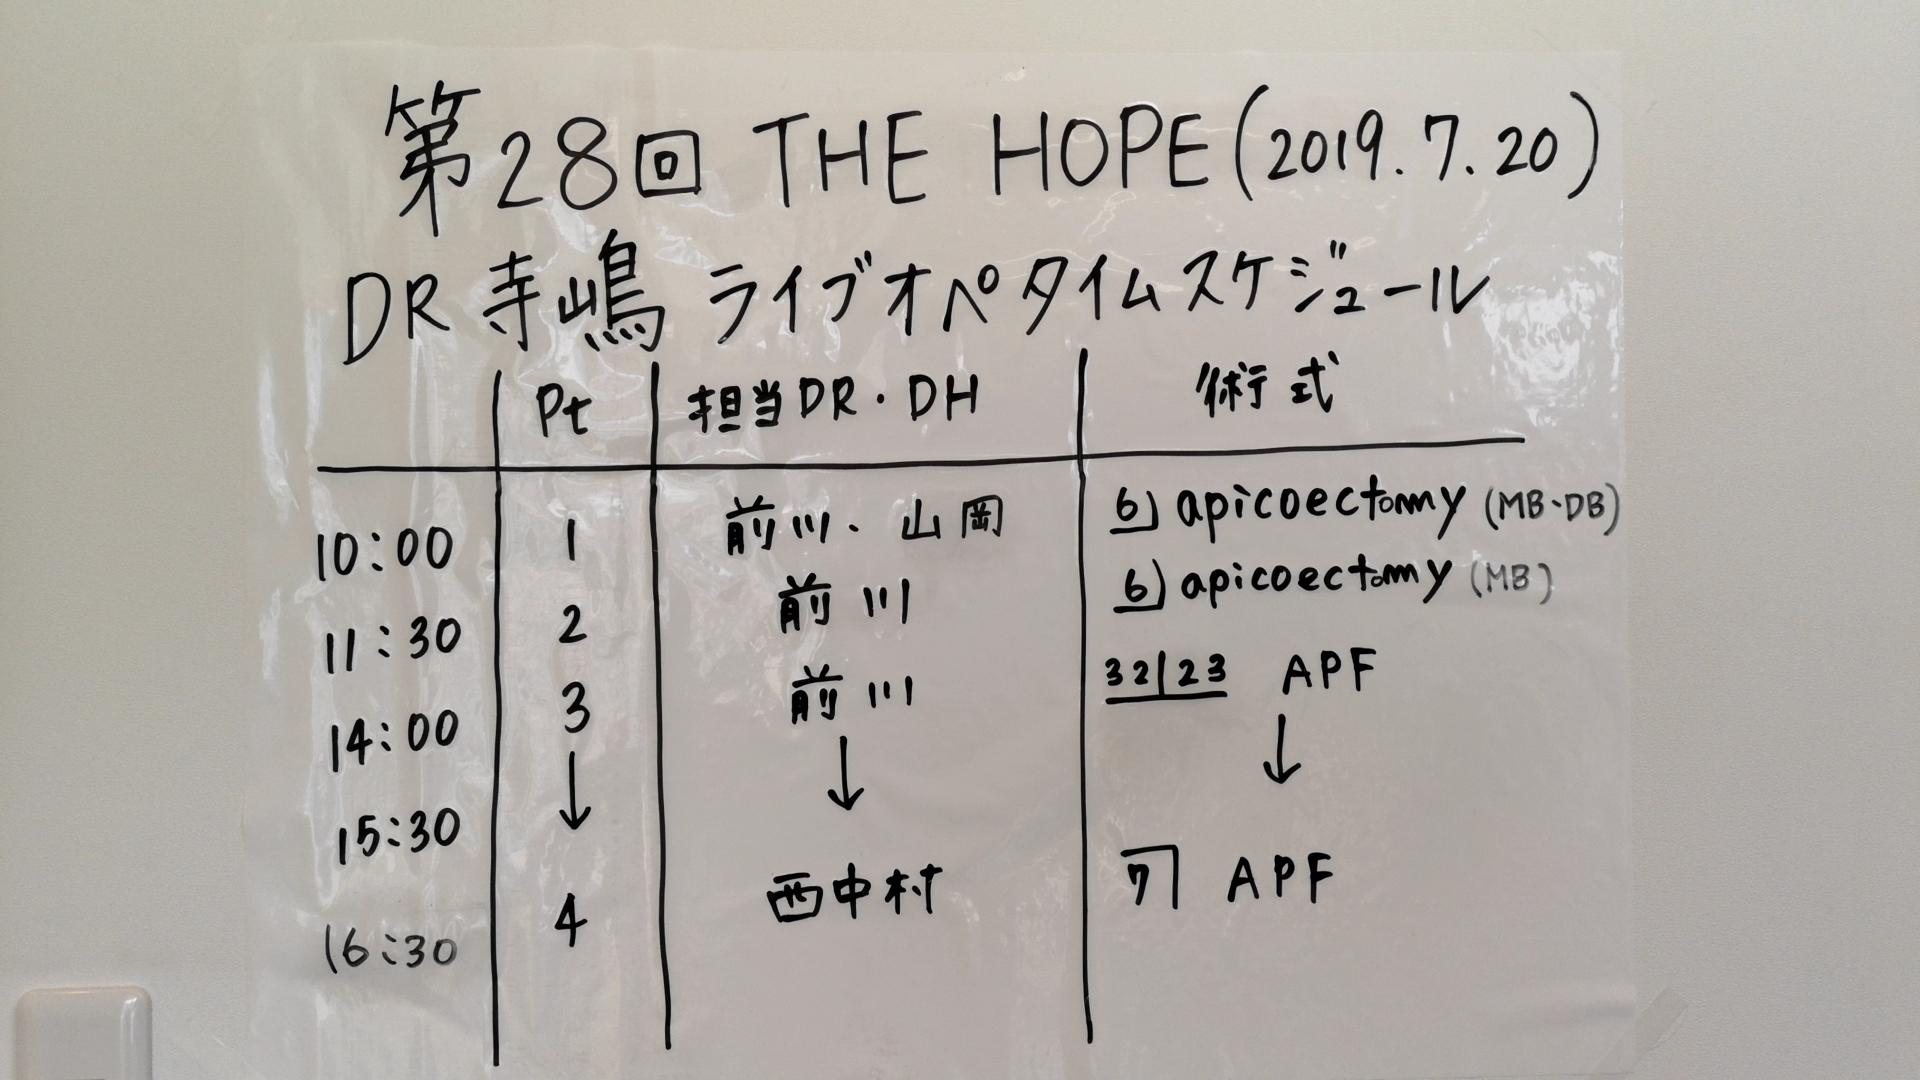 第28回 THE HOPE (2019.7.20)
DR 寺嶋 ライブオペタイムスケジュール
Pt 担当DR・DH 術式
10:00 1 前川・山岡 6┘ apicoectomy (MB・DB)
11:30 2 前川 6┘ apicoectomy (MB)
14:00 3 前川 32|23 APF
15:30 ↓ ↓ ↓
16:30 4 西中村 7┐ APF